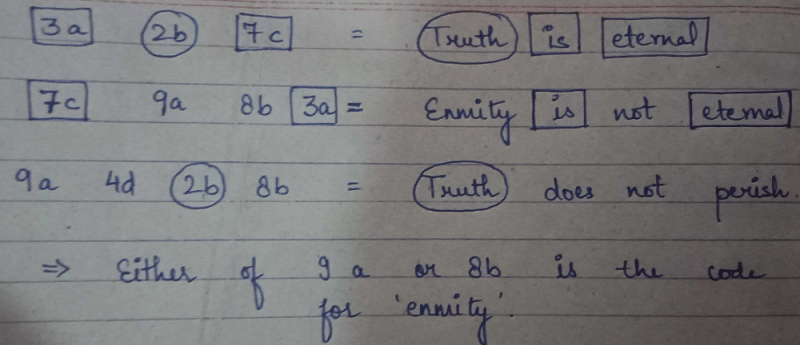 3a 2b 7c = Truth is eternal
7c 9a 8b 3a = Enmity is not eternal
9a 4d 2b 8b = Truth does not perish.
⇒ Either of 9a or 8b is the code
for 'enmity'.